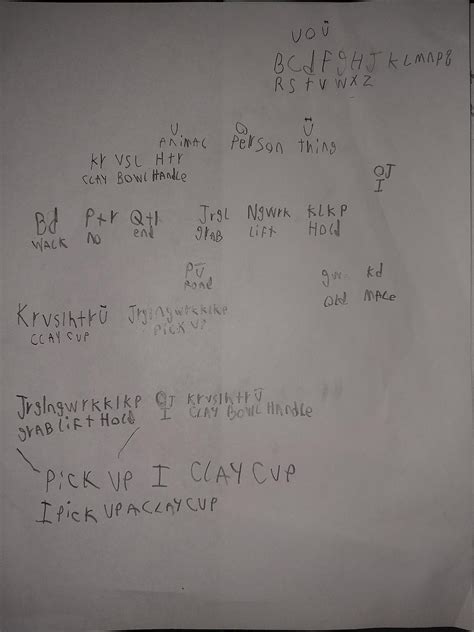 U O Ü
B C d F g H J K L M n p q
R S t V W X Z
U O Ü
ANiMAL Person thing
Kr VSL Htr
CLAY BOWL HANdle
OJ
I
Bd Ptr Qtl Jrgl Ngwrk KLKP
WALK NO end grAB LiFt HOLd
PŪ kd
ROAd MALe
Krvslhtrū Jrglngwrkklkp
CLAY CUP PiCK UP
Jrglngwrkklkp OJ Krvslhtrū
grAB LiFt HOLd I CLAY BOWL HANdle
PiCK UP I CLAY CUP
I PiCK UP A CLAY CUP